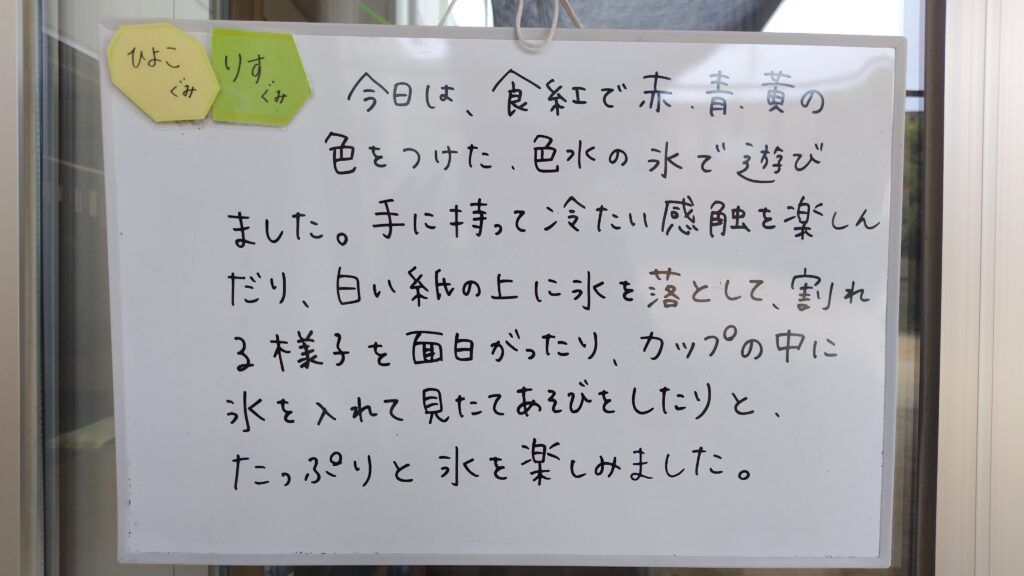 ひよこ
ぐみ
りす
ぐみ
今日は、食紅で赤、青、黄の
色をつけた、色水の氷で遊び
ました。手に持って冷たい感触を楽しん
だり、白い紙の上に氷を落として、割れ
る様子を面白がったり、カップの中に
氷を入れて見たてあそびをしたりと、
たっぷりと氷を楽しみました。